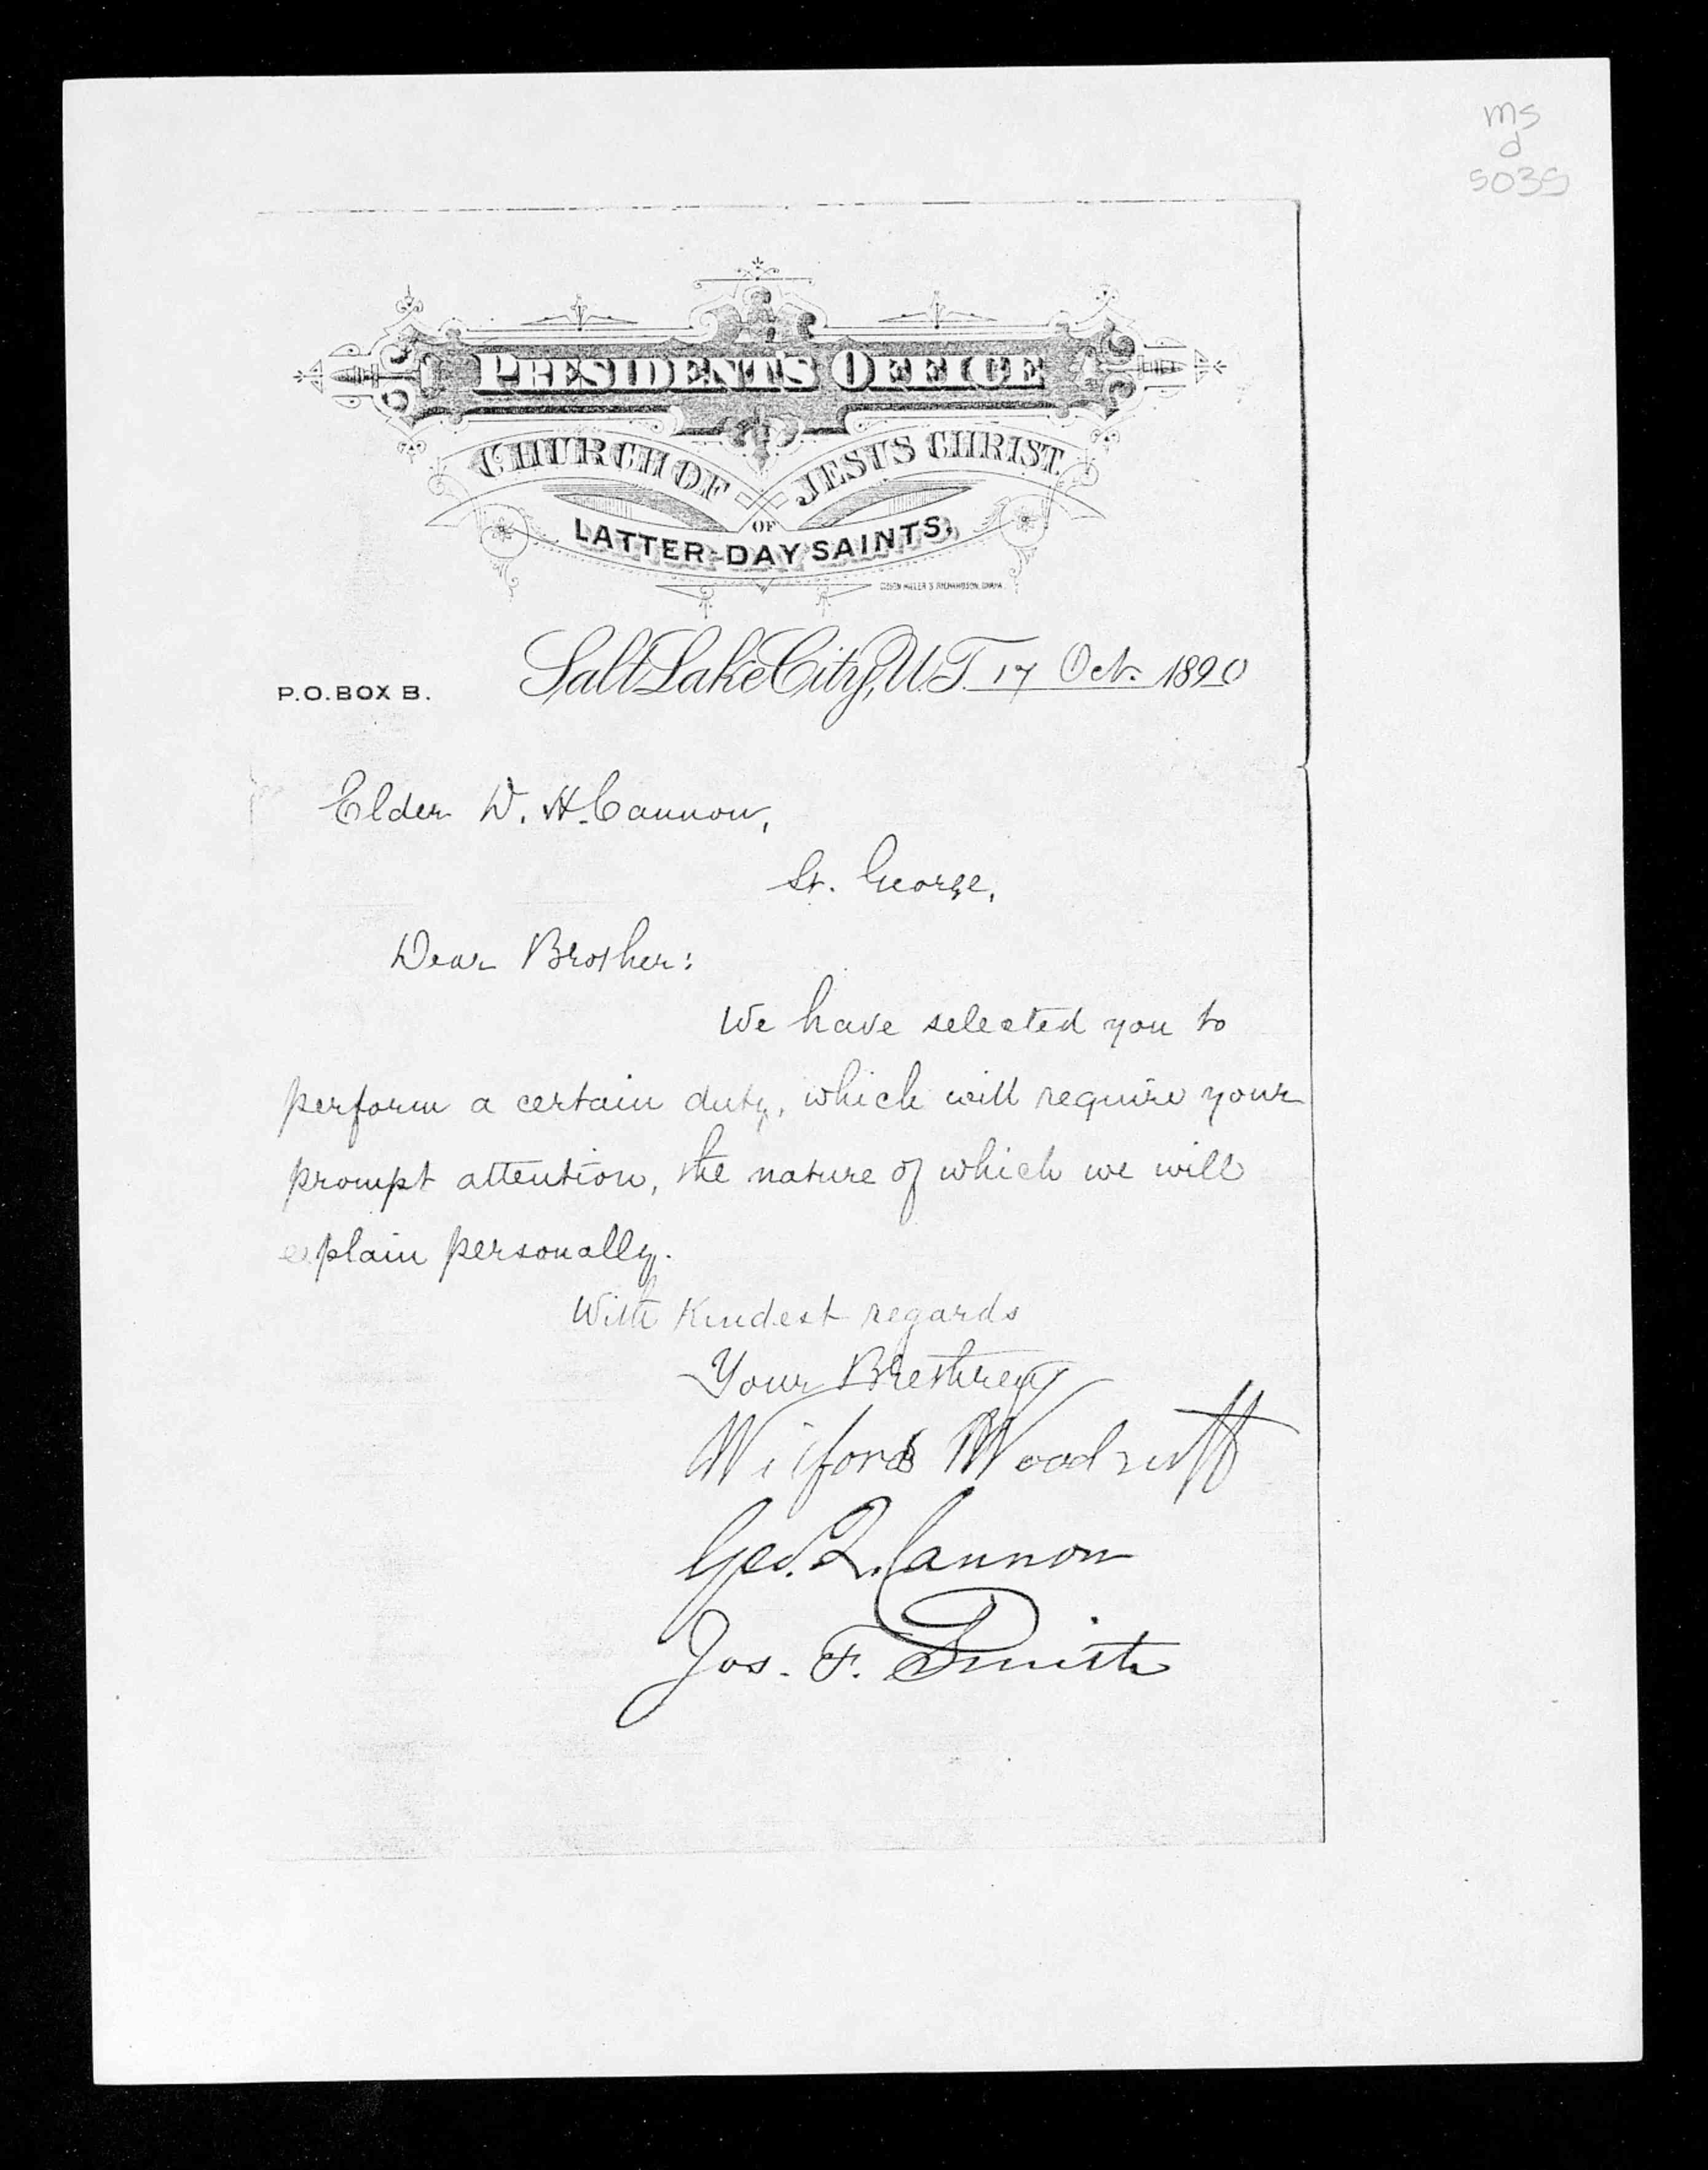 ms
d
5035
PRESIDENT'S OFFICE
CHURCH OF JESUS CHRIST
OF
LATTER-DAY SAINTS.
P.O. BOX B.
Salt Lake City, U.T. 17 Oct. 1890
Elder D. H. Cannon,
St. George,
Dear Brother:
We have selected you to
perform a certain duty, which will require your
prompt attention, the nature of which we will
explain personally.
With Kindest regards
Your Brethren
Wilford Woodruff
Geo. Q. Cannon
Jos. F. Smith